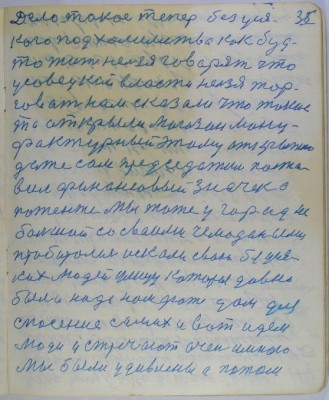 Дело такое тепер без уся- 35
кого подхалимства как буд-
то жит нельзя говорят что
у совецкой власти нелзя тор-
говат нам сказали что такое
та открыли магазин ману-
фактурный этому открытию
даже сам председатель поста
вил финансовый значек о
патенте мы тоже у город не
болшой со своими чемоданами
искали свои
ких людей улицу которы давно
были надо нам даже дом для
спасение самих и вот идем
люди и стречают очен много
мы были удивлены а потом